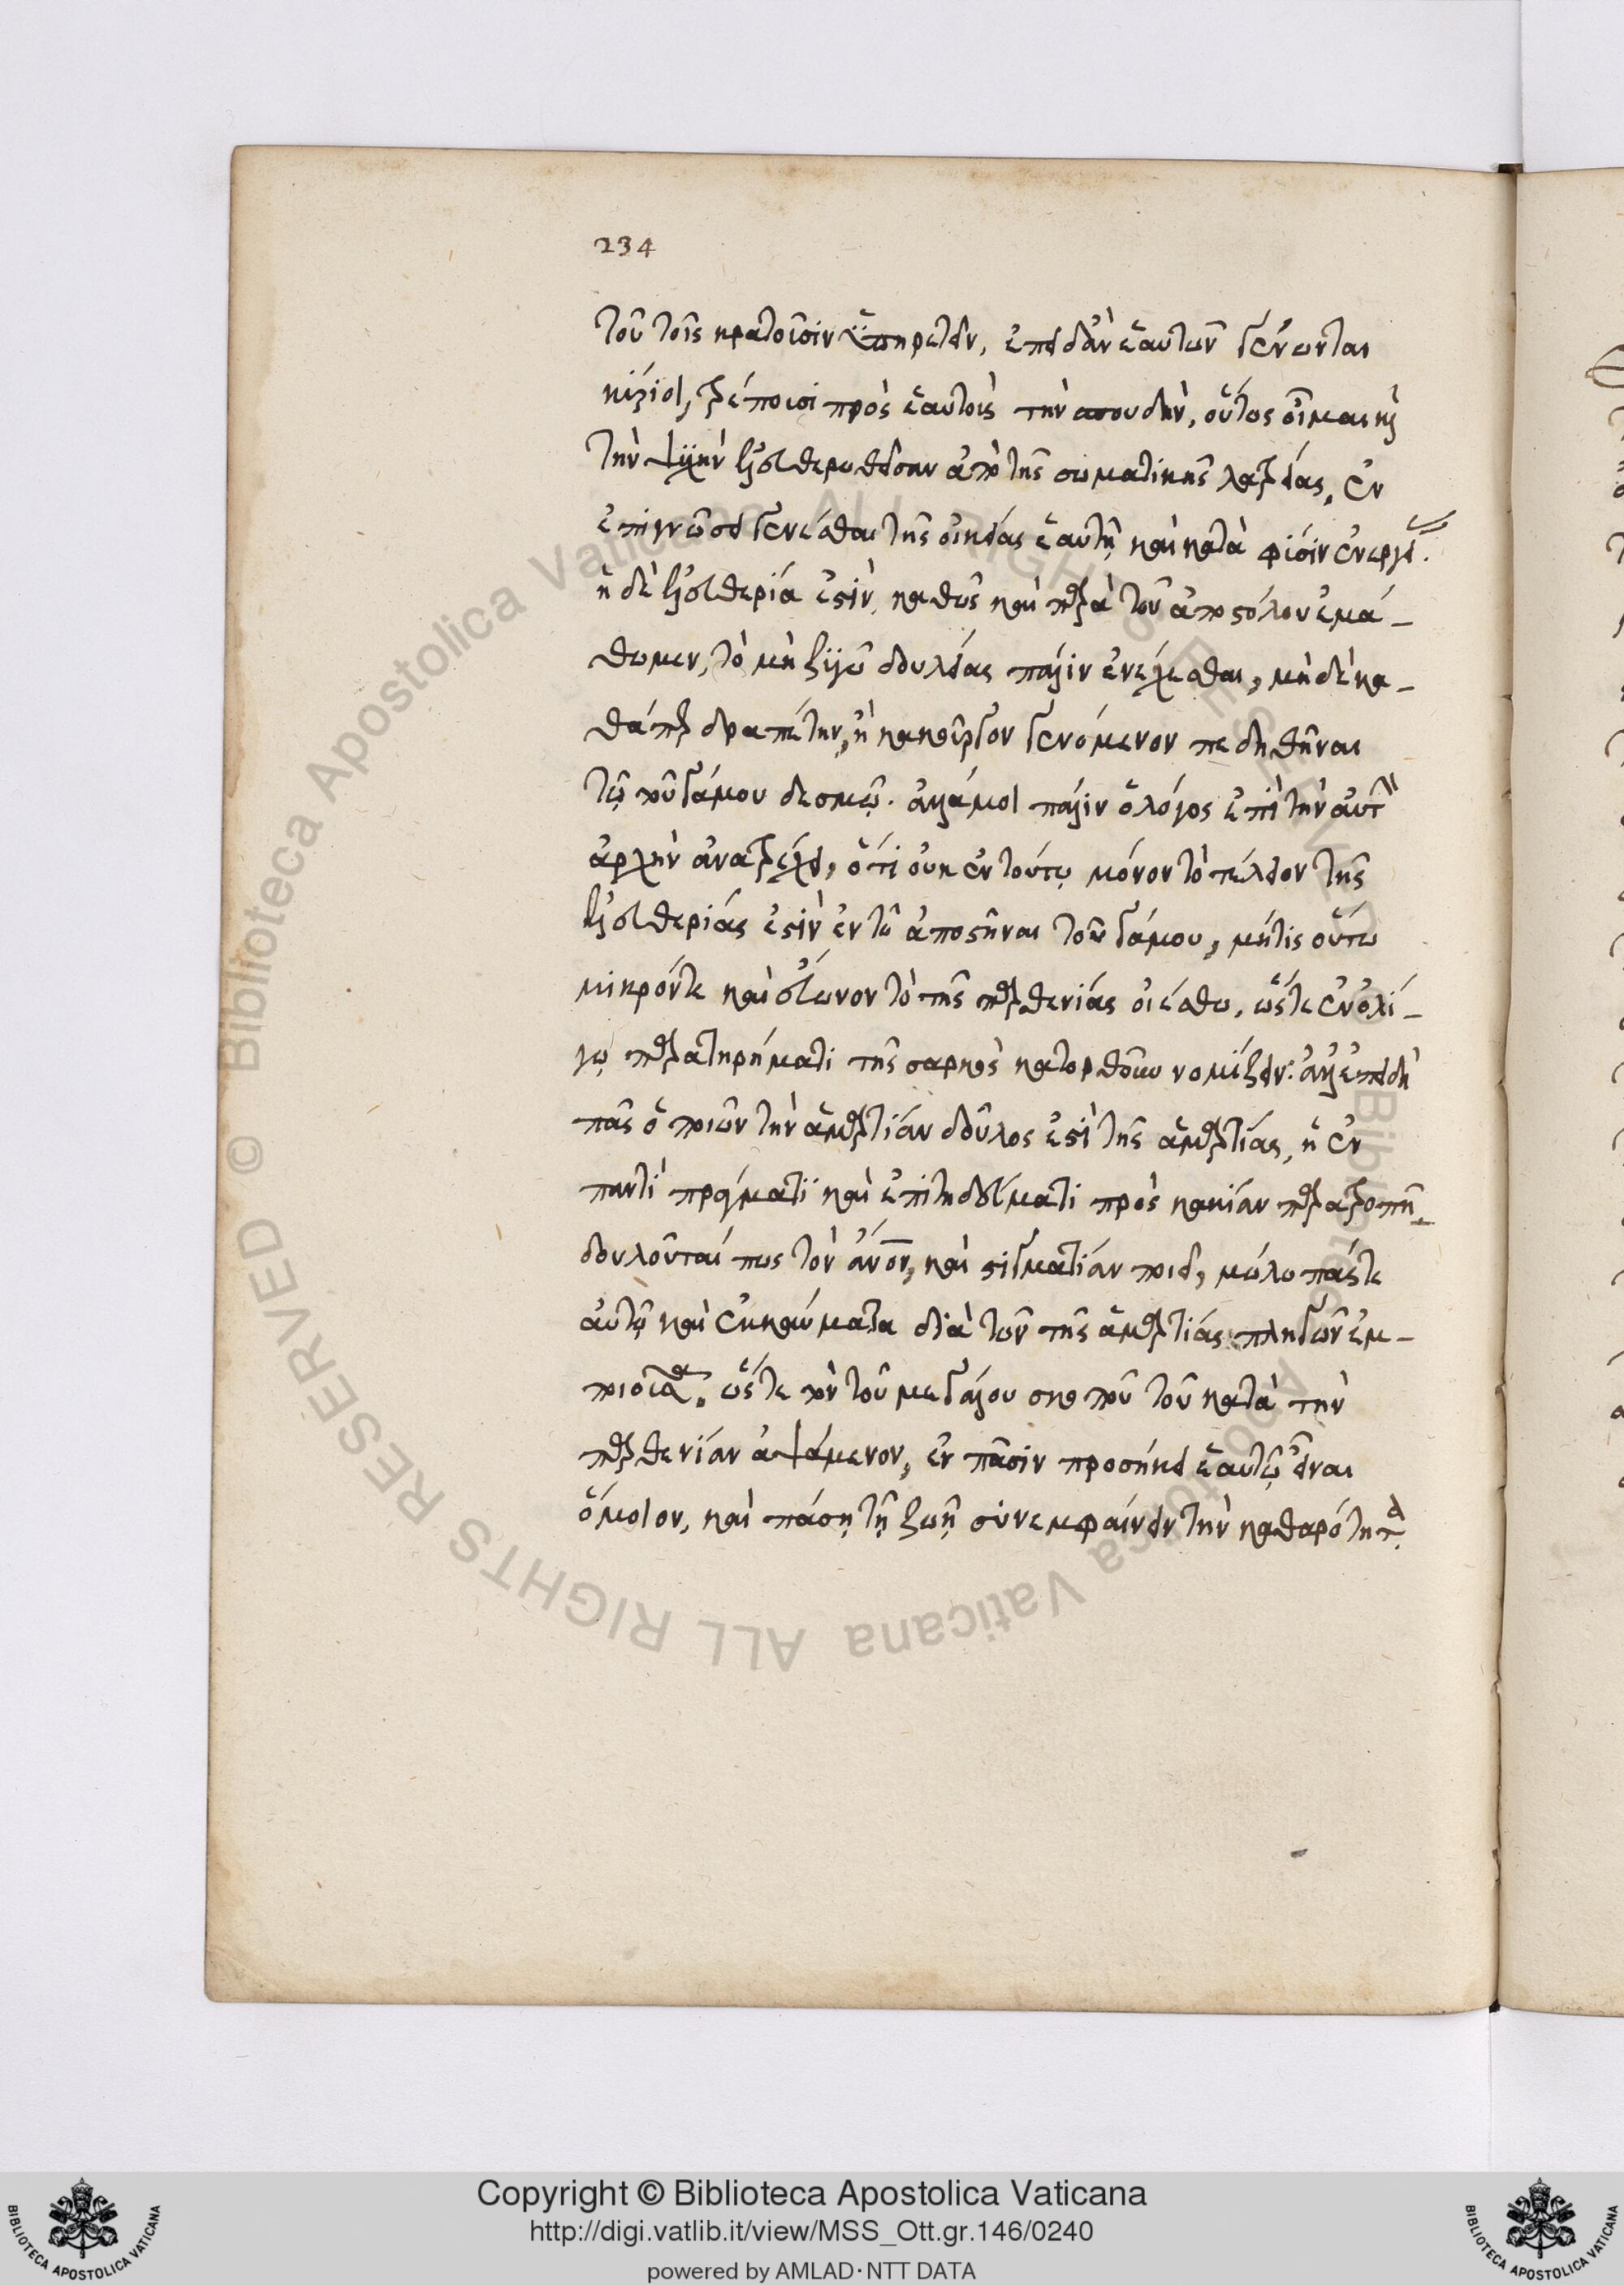 234
τοῦ τοῖς κρατοῦσιν ὑπηρετεῖν, ἐπειδὰν ἑαυτῶν γένωνται
κύριοι, τρέπουσι πρὸς ἑαυτοὺς τὴν σπουδὴν, οὕτως οἶμαι καὶ
τὴν ψυχὴν ἐλευθερωθεῖσαν ἀπὸ τῆς σωματικῆς λατρείας, ἐν
ἐπιγνώσει γενέσθαι τῆς οἰκείας ἑαυτῇ καὶ κατὰ φύσιν ἐνεργείας.
ἡ δὲ ἐλευθερία ἐστὶν, καθὼς καὶ παρὰ τοῦ ἀποστόλου ἐμά-
θωμεν, τὸ μὴ ζυγῷ δουλείας πάλιν ἐνέχεσθαι, μὴ δὲ κα-
θάπερ δραπέτην, ἢ κακοῦργον γενόμενον πεδηθῆναι
τῷ τοῦ γάμου δεσμῷ. ἀλλά μοι πάλιν ὁ λόγος ἐπὶ τὴν αὐτὴν
ἀρχὴν ἀνατρέχει, ὅτι οὐκ ἐν τούτῳ μόνον τὸ τέλειον τῆς
ἐλευθερίας ἐστὶν ἐν τῷ ἀποστῆναι τοῦ γάμου, μή τις οὕτω
μικρόν τε καὶ εὔωνον τὸ τῆς παρθενίας οἰέσθω, ὥστε ἐν ὀλί-
γῳ παρατηρήματι τῆς σαρκὸς κατορθοῦν νομίζειν. ἀλλ' ἐπειδὴ
πᾶς ὁ ποιῶν τὴν ἁμαρτίαν δοῦλος ἐστὶ τῆς ἁμαρτίας, ἡ ἐν
παντὶ πράγματι καὶ ἐπιτηδεύματι πρὸς κακίαν παρατροπὴ
δουλοῦταί πως τὸν ἄνον, καὶ στιγματίαν ποιεῖ, μώλωπάς τε
αὐτῷ καὶ ἐγκαύματα διὰ τῶν τῆς ἁμαρτίας πληγῶν ἐμ-
ποιοῦσα. ὥστε τὸν τοῦ μεγάλου σκοποῦ τοῦ κατὰ τὴν
παρθενίαν ἁψάμενον, ἐν πᾶσιν προσήκει ἑαυτῷ εἶναι
ὅμοιον, καὶ πάσῃ τῇ ζωῇ συνεμφαίνειν τὴν καθαρότητα.
Copyright © Biblioteca Apostolica Vaticana
http://digi.vatlib.it/view/MSS_Ott.gr.146/0240
powered by AMLAD·NTT DATA